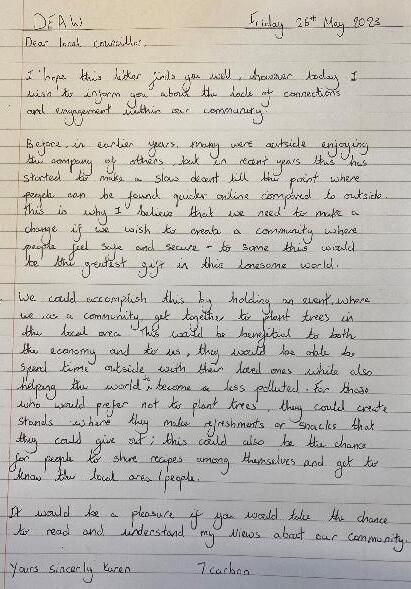 DEAW Friday 26th May 2023
Dear local councillor,
I hope this letter finds you well, however today I
wish to inform you about the lack of connections
and engagement within our community.
Before, in earlier years, many were outside enjoying
the company of others, but in recent years this has
started to make a slow decent till the point where
people can be found quicker online compared to outside.
this is why I believe that we need to make a
change if we wish to create a community where
people feel safe and secure - to some this would
be the greatest gift in this lonesome world.
We could accomplish this by holding an event, where
we, as a community, get together to plant trees in
the local area. This would be benefitial to both
the economy and to us, they would be able to
spend time outside with their loved ones while also
helping the world become a less polluted. For those
who would prefer not to plant trees, they could create
stands where they make refreshments or snacks that
they could give out; this could also be the chance
for people to share recipes among themselves and get to
know the local area/people.
It would be a pleasure if you would take the chance
to read and understand my views about our community.
Yours sincerly Karen 7 carbon